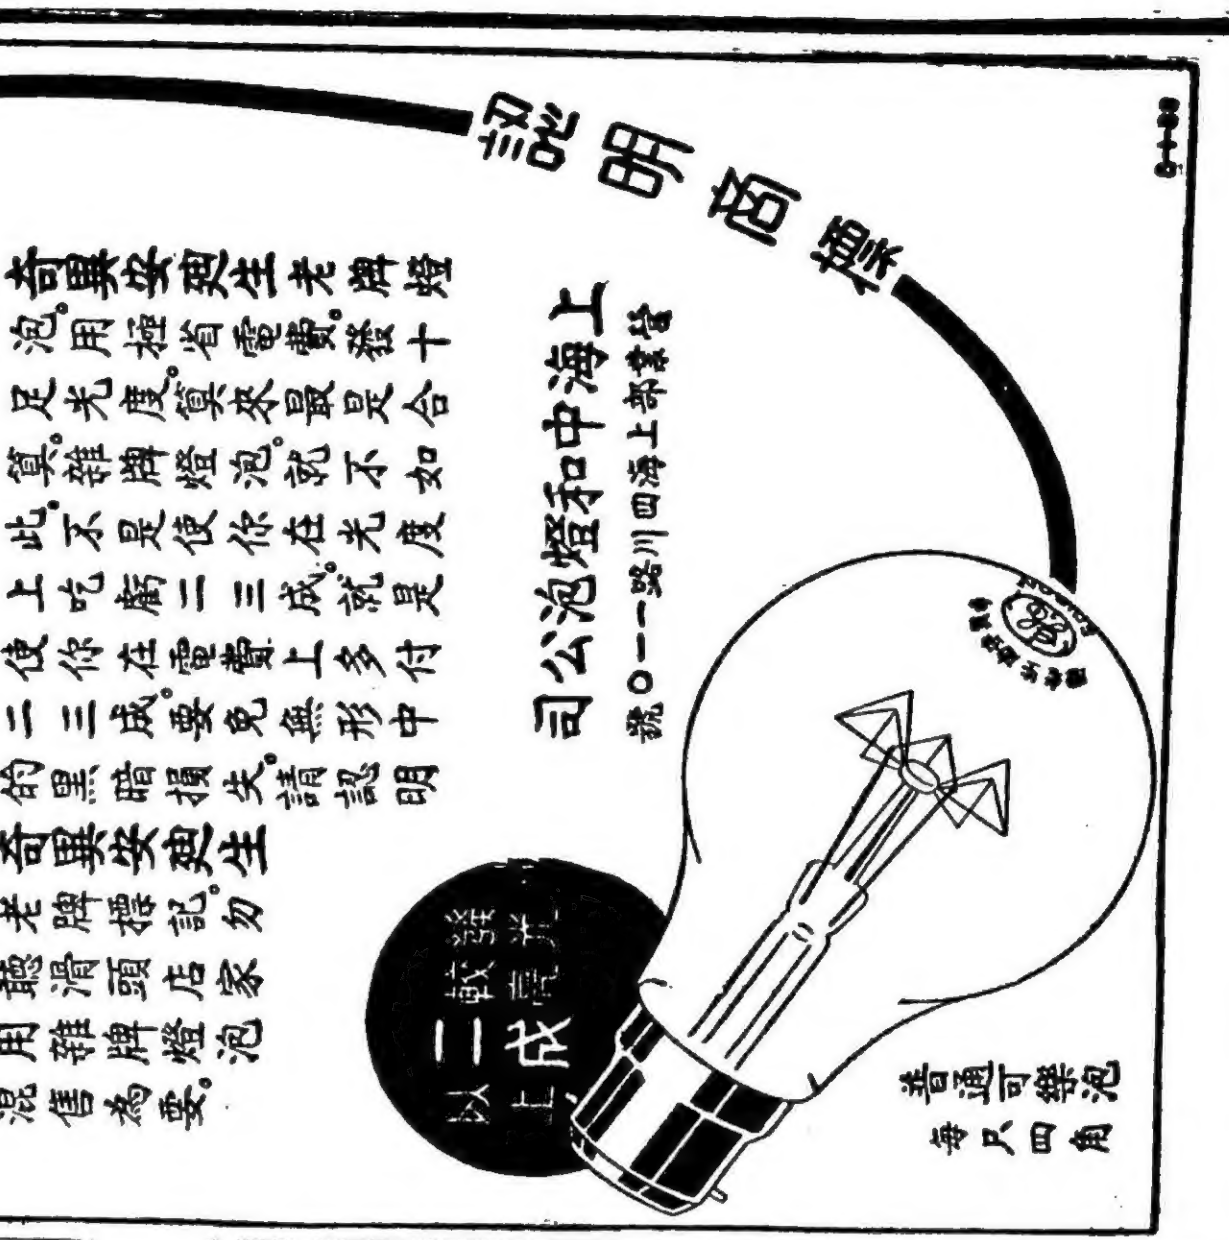 認明商標
奇異安迪生老牌燈
泡。用極省電費。發十
足光度。算來最是合
算。雜牌燈泡。就不如
此。不是使你在光度
上吃虧二三成。就是
使你在電費上多付
二三成。要免無形中
的黑暗損失。請認明
奇異安迪生
老牌標記。勿
聽滑頭店家
用雜牌燈泡
混售為要。
司公泡燈和中海上
號〇一一路川四海上部業營
發光
較亮
二成
以上
普通可樂泡
每只四角